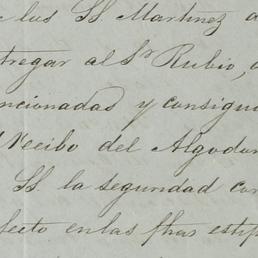 e los SS Martinez a
tregar al Sr Rubio, 
ncionadas y consigu
l Recibo del Algodon
SS la seguridad con
fecto en las fhas estip